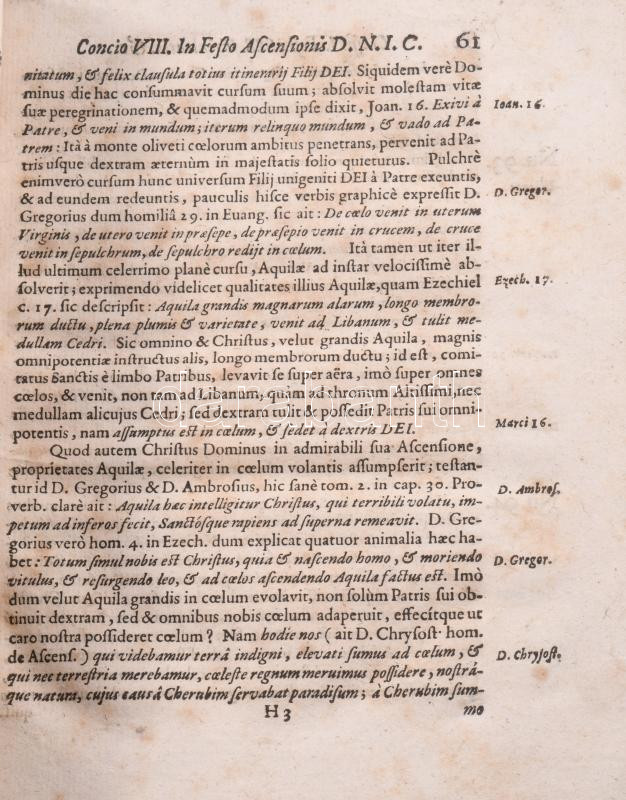 Concio VIII. In Festo Ascensionis D. N. I. C. 61
nitatum, & felix clausula totius itinerarij Filij DEI. Siquidem verè Do-
minus die hac consummavit cursum suum; absolvit molestam vitæ
suæ peregrinationem, & quemadmodum ipse dixit, Joan. 16. Exivi à
Ioan. 16.
Patre, & veni in mundum; iterum relinquo mundum, & vado ad Pa-
trem: Ità à monte oliveti cœlorum ambitus penetrans, pervenit ad Pa-
tris usque dextram æternùm in majestatis solio quieturus. Pulchrè
enimverò cursum hunc universum Filij unigeniti DEI à Patre exeuntis,
& ad eundem redeuntis, pauculis hisce verbis graphicè expressit D.
D. Gregor.
Gregorius dum homiliâ 29. in Euang. sic ait: De cœlo venit in uterum
Virginis, de utero venit in præsepe, de præsepio venit in crucem, de cruce
venit in sepulchrum, de sepulchro redijt in cœlum. Ità tamen ut iter il-
lud ultimum celerrimo planè cursu, Aquilæ ad instar velocissimè ab-
solverit; exprimendo videlicet qualitates illius Aquilæ, quam Ezechiel
Ezech. 17.
c. 17. sic descripsit: Aquila grandis magnarum alarum, longo membro-
rum ductu, plena plumis & varietate, venit ad Libanum, & tulit me-
dullam Cedri. Sic omnino & Christus, velut grandis Aquila, magnis
omnipotentiæ instructus alis, longo membrorum ductu; id est, comi-
tatus Sanctis è limbo Patribus, levavit se super aëra, imò super omnes
cœlos, & venit, non tam ad Libanum, quàm ad thronum Altissimi, nec
medullam alicujus Cedri; sed dextram tulit & possedit Patris sui omni-
potentis, nam assumptus est in cœlum, & sedet à dextris DEI.
Marci 16.
Quod autem Christus Dominus in admirabili sua Ascensione,
proprietates Aquilæ, celeriter in cœlum volantis assumpserit; testan-
tur id D. Gregorius & D. Ambrosius, hic sanè tom. 2. in cap. 30. Pro-
D. Ambros.
verb. clarè ait: Aquila hæc intelligitur Christus, qui terribili volatu, im-
petum ad inferos fecit, Sanctósque rapiens ad superna remeavit. D. Gre-
gorius verò hom. 4. in Ezech. dum explicat quatuor animalia hæc ha-
bet: Totum simul nobis est Christus, quia & nascendo homo, & moriendo
D. Gregor.
vitulus, & resurgendo leo, & ad cœlos ascendendo Aquila factus est. Imò
dum velut Aquila grandis in cœlum evolavit, non solùm Patris sui ob-
tinuit dextram, sed & omnibus nobis cœlum adaperuit, effecítque ut
caro nostra possideret cœlum? Nam hodie nos (ait D. Chrysost. hom.
de Ascens.) qui videbamur terrâ indigni, elevati sumus ad cœlum, &
D. Chrysost.
qui nec terrestria merebamur, cœleste regnum meruimus possidere, nostrá-
que natura, cujus causâ Cherubim servabat paradisum; à Cherubim sum-
H 3
mo
darabanth